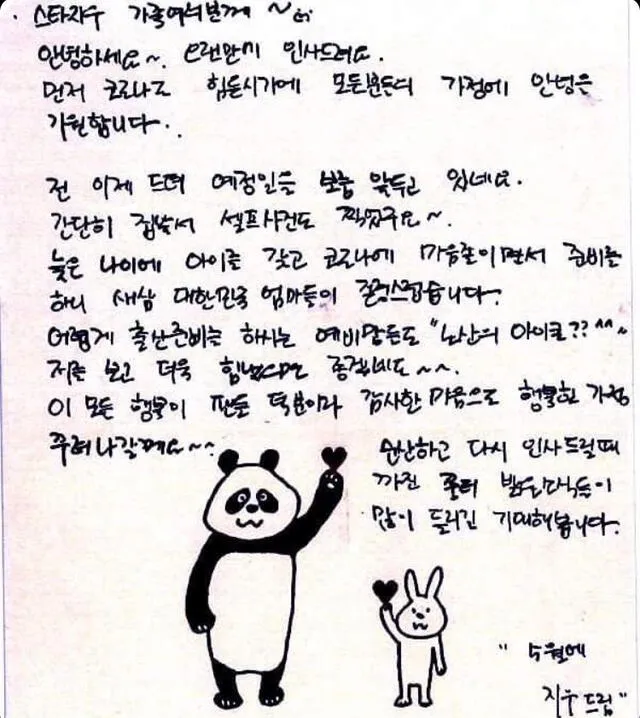 스타지우 가족여러분께 ~
안녕하세요~. 오랜만에 인사드려요.
먼저 코로나로 힘든시기에 모든분들의 가정에 안녕을
기원합니다..
전 이제 드뎌 예정일을 보름 앞두고 있네요.
간단히 집에서 셀프사진도 찍었구요~.
늦은 나이에 아이를 갖고 코로나에 마음졸이면서 준비를
하니 새삼 대한민국 엄마들이 존경스럽습니다.
어렵게 출산준비를 하시는 예비맘들도 "노산의 아이콘?? ^^~
저를 보고 더욱 힘냈으면 좋겠네요~~.
이 모든 행복이 팬들 덕분이라 감사한 마음으로 행복한 가정
꾸려나갈께요~~
순산하고 다시 인사드릴때
까진 밝은소식들이
많이 들리길 기대해봅니다.
" 5월에
지우드림"